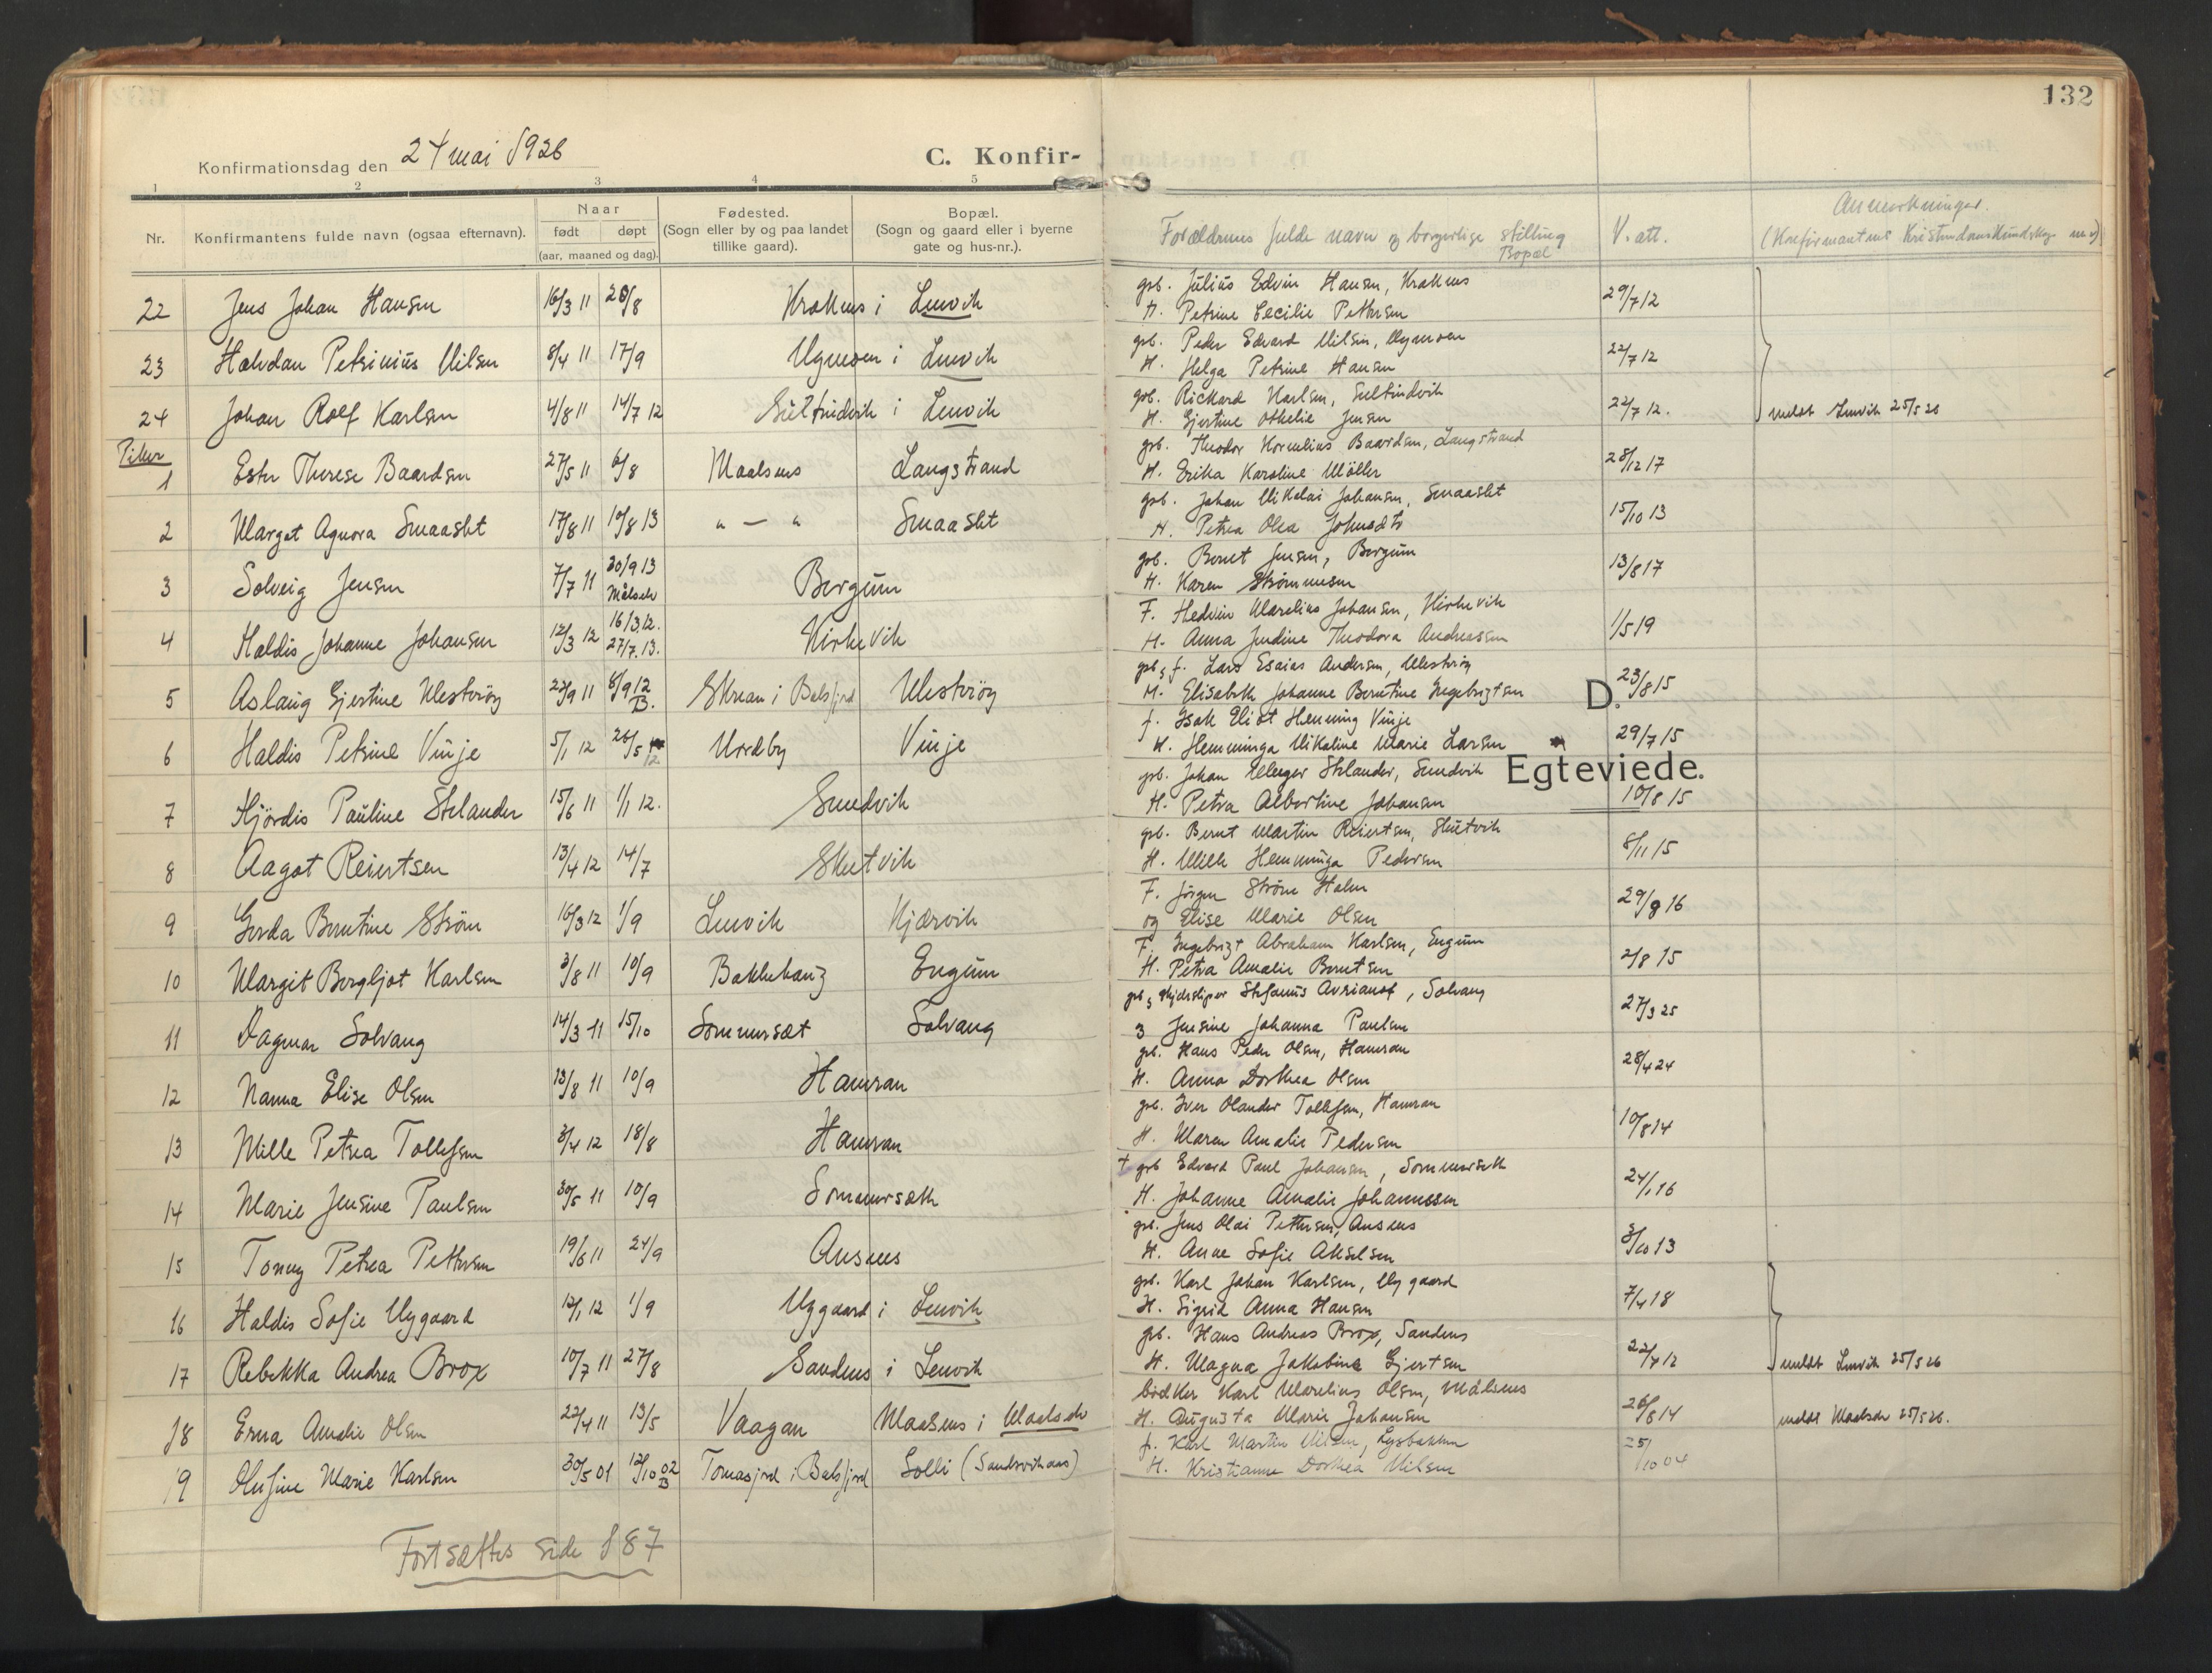 132
Konfirmationsdag den 24 mai 1926
C. Konfir-
1 2 3 4 5
Nr.
Konfirmantens fulde navn (ogsaa efternavn).
Naar
født døpt
(aar, maaned og dag).
Fødested.
(Sogn eller by og paa landet
tillike gaard).
Bopæl.
(Sogn og gaard eller i byerne
gate og hus-nr.).
Forældrenes fulde navn og borgerlige stilling
Bopæl
V. att.
Anmerkninger.
(Konfirmantens Kristendomskundskap m.v)
22 Jens Johan Hansen 16/3 11 20/8 Kraknes i Lenvik
grb. Julius Edvin Hansen, Kraknes 29/7 12
H. Petrine Cecilie Pettersen
23 Halvdan Petrinius Nilsen 8/4 11 17/9 Nymoen i Lenvik
grb. Peder Edvard Nilsen, Nymoen 22/7 12
H. Helga Petrine Hansen
24 Johan Rolf Karlsen 4/8 11 14/7 12 Sultindvik i Lenvik
grb. Rickard Karlsen, Sultindvik 22/7 12. meldt Lenvik 25/5 26
H. Gjertine Othelie Jensen
Piker
1 Ester Therese Baardsen 27/5 11 6/8 Maalsnes Langstrand
grb. Theodor Kornelius Baardsen, Langstrand 28/12 17
H. Erika Karoline Møller
2 Margot Agnora Smaaslet 17/8 11 10/8 13 " — " Smaaslet
grb. Johan Nikolai Johansen, Smaaslet 15/10 13
H. Petra Olea Johnsdtr
3 Solveig Jensen 7/7 11 30/9 13 Målselv Bergum
grb. Bernt Jensen, Bergum 13/8 17
H. Karen Strømmesen
4 Haldis Johanne Johansen 12/3 12 16/3.12. 27/7.13. Kirkevik
F. Hedvin Marelius Johansen, Kirkevik 1/5 19
H. Anna Jendine Theodora Andreassen
5 Aslaug Gjertine Mestrøy 22/9 11 8/9 12 B. Skrean i Balsfjord Mestrøy
grb. & f. Lars Esaias Andersen, Mestrøy 23/8 15
H. Elisabeth Johanne Berntine Ingebrigtsen
D.
6 Haldis Petrine Vinje 5/1 12 26/5 12 Nordby Vinje
f. Isak Eliot Henning Vinje 29/7 15
H. Hemminga Nikoline Marie Larsen
Egteviede.
7 Hjördis Pauline Stelander 15/6 11 1/1 12. Sundvik
grb. Johan Stelander, Sundvik 10/8 15
H. Petra Albertine Johansen
8 Aagot Reiertsen 13/4 12 14/7 Skutvik
grb. Bernt Martin Reiertsen, Skutvik 8/11 15
H. Mille Hemminga Pedersen
9 Gerda Berntine Strøm 16/3 12 1/9 Lenvik Kjærvik
F. Jörgen Ström Holm 29/8 16
og Elise Marie Olsen
10 Margit Bergljot Karlsen 3/8 11 10/9 Bakkehaug Engum
F. Ingebrigt Abraham Karlsen, Engum 2/8 15
H. Petra Amalie Berntsen
11 Dagmar Solvang 14/3 11 15/10 Sommersæt Solvang
grb & Stefanus Avrianof, Solvang 27/3 25
& Jensine Johanna Paulsen
12 Nanna Elise Olsen 13/8 11 10/9 Hamran
grb. Hans Peder Olsen, Hamran 28/4 24
H. Anna Dorthea Olsen
13 Mille Petrea Tollefsen 3/4 12 18/8 Hamran
grb. Iver Olander Tollefsen, Hamran 10/8 14
H. Maren Amalie Pedersen
14 Marie Jensine Paulsen 30/5 11 10/9 Sommersæth
† grb Edvard Paul Johansen, Sommerseth 24/1 16
H. Johanne Amalie Johannessen
15 Tonny Petrea Pettersen 19/6 11 24/9 Ansnes
grb. Jens Olai Pettersen, Ansnes 3/10 13
H. Anne Sofie Akselsen
16 Haldis Sofie Nygaard 12/1 12 1/9 Nygaard i Lenvik
grb. Karl Johan Karlsen, Nygaard 7/4 18
H. Sigrid Anna Hansen
17 Rebekka Andrea Brox 10/7 11 27/8 Sandnes i Lenvik
grb. Hans Andreas Brox, Sandnes 22/7 12 meldt Lenvik 25/5 26
H. Magna Jakobine Gjertsen
18 Erna Amalie Olsen 22/4 11 13/5 Vaagan Maalsnes i Maalselv
bødker Karl Marelius Olsen, Målsnes 26/8 14 meldt Maalselv 25/5 26.
H. Augusta Marie Johansen
19 Olufine Marie Karlsen 30/5 01 12/10 02 B Tomasjord i Balsfjord Solli (Sandsvikaas)
f. Karl Martin Nilsen, Lysbakken 25/10 04
H. Kristianna Dorthea Nilsen
Fortsættes side 187